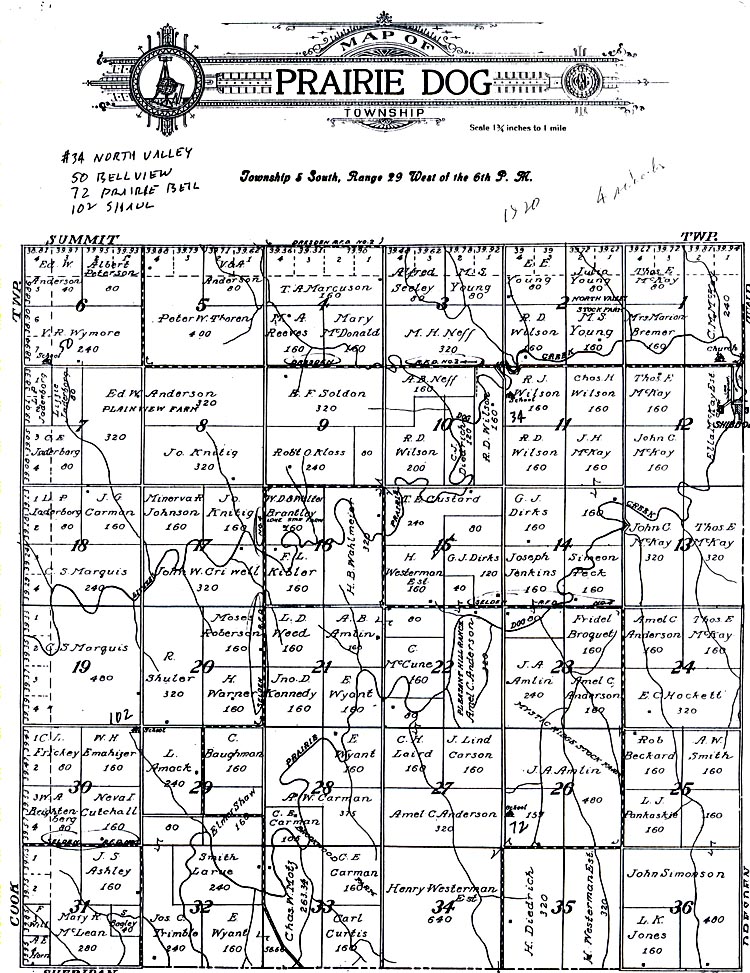 MAP OF
PRAIRIE DOG
TOWNSHIP
Scale 1¾ inches to 1 mile
#34 NORTH VALLEY
50 BELLVIEW
72 PRAIRIE BELL
102 SHAUL
Township 5 South, Range 29 West of the 6th P. M.
1920
SUMMIT
TWP.
TWP.
Ed W. Anderson 40
Albert Peterson 80
6
Y.R. Wymore 240
School
50
V&A Anderson 80
5
Peter W. Thoren 400
T. A. Marcuson 160
4
M. A. Reeves 160
Mary McDonald 160
DRESDEN
Alfred Seeley 80
M. S. Young 80
3
M. H. Neff 320
R.F.D. NO. 2
E E Young 80
Julia Young 80
2
NORTH VALLEY STOCK FARM
R. D. Wilson 160
M. S. Young 160
CREEK
Thos E McKay 80
1
Mrs Marion Bremer 160
Church
7
320
C E Loderborg 80
Ed W. Anderson 320
PLAINVIEW FARM
8
Jo. Knitig 320
B. F. Soldon 320
9
Robt O Kloss 240
80
A. B. Neff 160
10
R. D. Wilson 200
R. D. Wilson 160
C. J. Diedrich 120
R. J. Wilson 160
School
34
Chas H Wilson 160
11
R. D. Wilson 160
J. H McKay 160
Thos E McKay 160
12
John C McKay 160
Ella McKay Est
L P Loderborg 80
J. G Carman 160
18
C. S. Marquis 240
Minerva R Johnson 160
Jo. Knitig 160
17
John W. Griswell 320
W. D & Walter Brantley 160
LONE STAR FARM
16
F. L. Kibler 160
H. B. Wahlmeier 320
T. E Custard 240
80
15
H. Westerman Est 160
G. J. Dirks 120
40
G. J. Dirks 160
160
14
Joseph Jenkins 160
Simeon Peck 160
CREEK
John C McKay 320
13
Thos E McKay 320
C. S Marquis 480
19
102
Moses Roberson 160
20
R. Shuler 320
H. Warner 160
L. D. Weed 160
A. B. Amlin 160
21
Jno. D Kennedy 160
E Wyant 160
80
22
C McCune 160
80
PLEASANT HILL RANCH
Amel C. Anderson 320
DOG
Fridel Broquet 160
23
J. A Amlin 240
Amel C. Anderson 160
MYSTIC NINE STOCK FARM
Amel C Anderson 160
Thos E McKay 160
24
E. C. Hockett 320
C. L. Frickey 80
W. H Emahizer 160
30
Neva I. Cutchall 160
80
School
L. Amack 240
C. Baughman 160
29
80
Elmer Shaw 160
PRAIRIE
E Wyant 160
28
A. W. Carman 375
C. E. Carman
C. H. Laird 160
J. Lind Carson 160
27
Amel C Anderson 320
J. A. Amlin 480
26
School
72
Rob Beckard 160
A. W. Smith 160
25
L. J. Pankaskie 160
J. S Ashley 160
31
Mary R McLean 280
Smith Larue 240
32
Jos C. Trimble 240
E Wyant 160
Chas. W. Motz 263.34
C. E Carman 160
33
Carl Curtis 160
Henry Westerman Est 640
34
H. Diedrich 320
35
H. Westerman Est. 320
John Simonson 480
36
L. K. Jones 160
COOK
DRESDEN
SHERIDAN